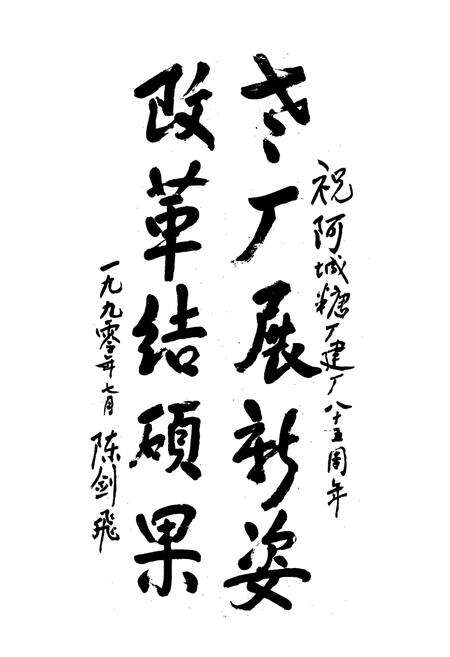 祝阿城糖厂建厂八十五周年
老厂展新姿
改革结硕果
一九九零年七月
陈剑飞